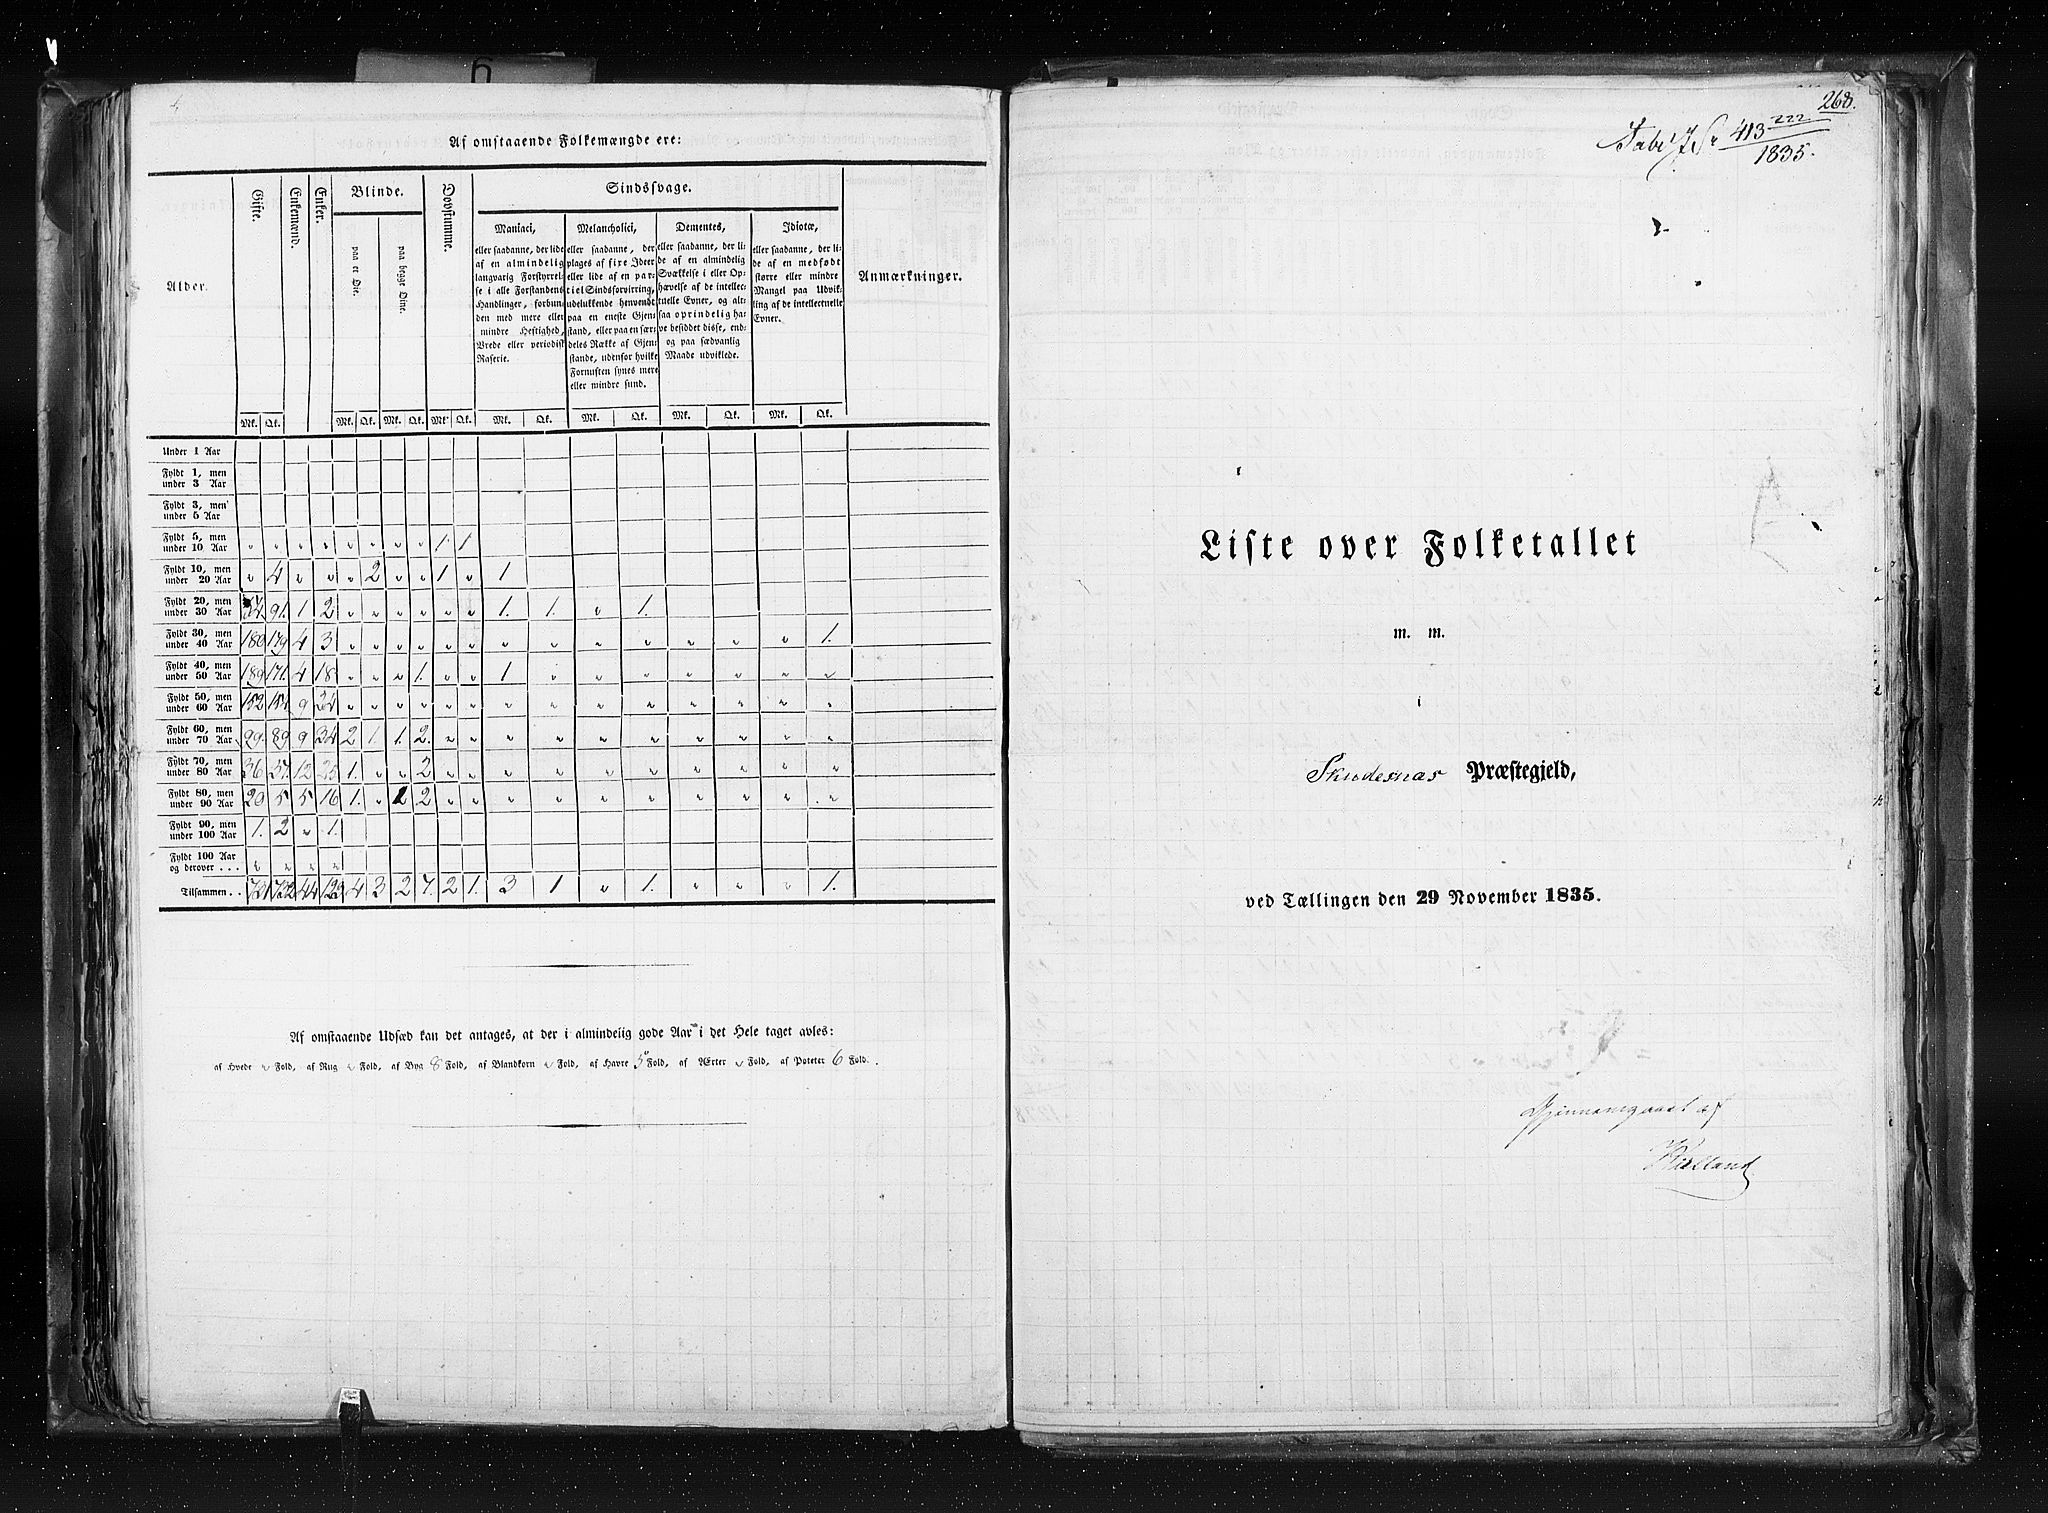 Af omstaaende Folkemængde ere:
Alder. Gifte. Enkemænd. Enker. Blinde. paa et Øie. paa begge Øine. Døvstumme. Sindssvage. Anmærkninger.
Maniaci,
eller saadanne, der lide
af en almindelig
langvarig Forstyrrel-
se i alle Forstandens
Handlinger, forbun-
den med mere eller
mindre Heftighed,
Vrede eller periodisk
Raserie.
Melancholici,
eller saadanne, der
plages af fixe Ideer
eller lide af en par-
tiel Sindsforvirring,
udelukkende henvendt
paa en eneste Gjen-
stand, eller paa en sær-
deles Række af Gjen-
stande, udenfor hvilke
Fornuften synes mere
eller mindre sund.
Dementes,
eller saadanne, der li-
de af en almindelig
Svækkelse i eller Op-
hævelse af de intellec-
tuelle Evner, og alt-
saa oprindelig ha-
ve besiddet disse, end-
og paa sædvanlig
Maade udviklede.
Idiotæ,
eller saadanne, der li-
de af en medfødt
større eller mindre
Mangel paa Udvik-
ling af de intellectuelle
Evner.
Mk. Qk. Mk. Qk. Mk. Qk. Mk. Qk. Mk. Qk. Mk. Qk. Mk. Qk. Mk. Qk.
Under 1 Aar
Fyldt 1, men
under 3 Aar
Fyldt 3, men
under 5 Aar
Fyldt 5, men
under 10 Aar " " " " " " " " 1 1
Fyldt 10, men
under 20 Aar " 4 " " " 2 " " 1 " 1
Fyldt 20, men
under 30 Aar 91. 1 2 " " " " " " 1. 1. " 1.
Fyldt 30, men
under 40 Aar 180 179 4 3 " " " " " " " " " " " " " 1.
Fyldt 40, men
under 50 Aar 189 171. 4 18 " " " 1. " " 1 " " " " " " "
Fyldt 50, men
under 60 Aar 152 154 9 24 " " " " " " " " " " " " " "
Fyldt 60, men
under 70 Aar 99. 89 9 34 2 1. 1. 2. " " " " " " " " " "
Fyldt 70, men
under 80 Aar 36 37. 12 25 1. " " 2 " " " " " " " " " "
Fyldt 80, men
under 90 Aar 20 5 5 16 1. " 1 2 " " " " " " " " " "
Fyldt 90, men
under 100 Aar 1. 2 " 1.
Fyldt 100 Aar
og derover . . . " " " "
Tilsammen . . 731 732 44 4 3 2 7. 2 1. 3 1 " 1. " " " 1.
Af omstaaende Udsæd kan det antages, at der i almindelig gode Aar i det Hele taget avles:
af Hvede " Fold, af Rug " Fold, af Byg 8 Fold, af Blandkorn " Fold, af Havre 5 Fold, af Ærter " Fold, af Poteter 6 Fold.
268.
413 222
1835.
Liste over Folketallet
m. m.
i
Skudesnæs Præstegjeld,
ved Tællingen den 29 November 1835.
Gjennemgaaet af
Kielland